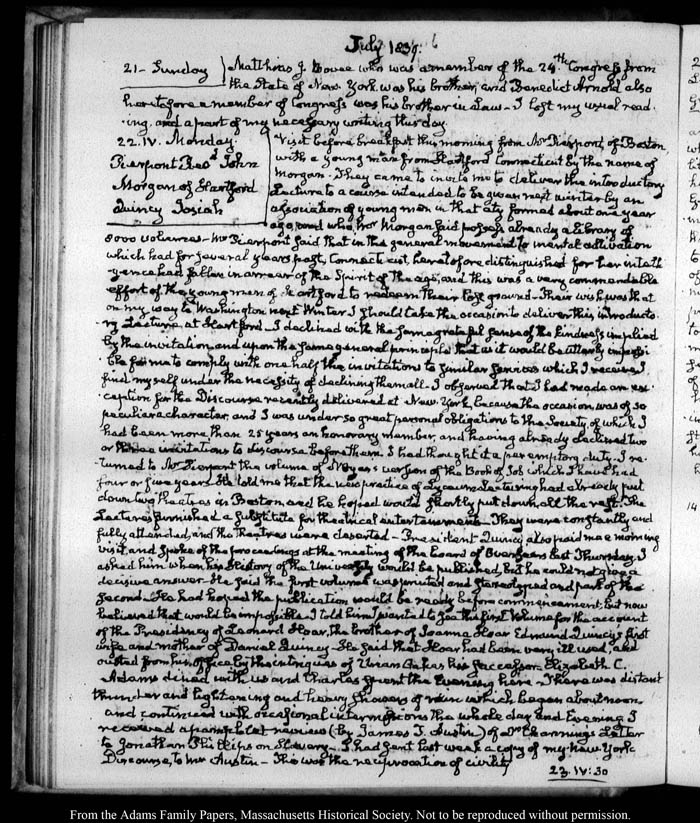 July 1839.
21- Sunday } Matthias J. Bovee who was a member of the 24th Congress from
the State of New York was his brother, and Benedict Arnold also
heretofore a member of Congress was his brother in Law- I lost my usual read-
-ing, and a part of my necessary writing this day.
22. IV. Monday. Visit before breakfast this morning from Mr Pierpont, of Boston
Pierpont Revd John with a young man from Hartford Connecticut by the name of
Morgan of Hartford Morgan. They came to invite me to deliver the introductory
Quincy Josiah Lecture to a course intended to be given next winter by an
association of young men in that city formed about one year
ago, and who, Mr Morgan said possess already a library of
8000 volumes- Mr Pierpont said that in the general movement to mental cultivation
which had for several years past, Connecticut heretofore distinguished for her intelli-
-gence had fallen in arrear of the Spirit of the age, and this was a very commendable
effort of the young men of Hartford to redeem their lost ground- Their wish was that
on my way to Washington next Winter I should take the occasion to deliver this introducto-
ry Lecture at Hartford- I declined with the same grateful sense of the kindness implied
by the invitation, and upon the same general principle that as it would be utterly impossi-
-ble for me to comply with one half the invitations to similar services which I receive, I
find myself under the necessity of declining them all- I observed that I had made an ex-
-ception for the Discourse recently delivered at New York, because the occasion was of so
peculiar a character, and I was under so great personal obligations to the Society of which I
had been more than 25 years an honorary member, and having already declined two
or three invitations to discourse before them I had thought it a peremptory duty. I re-
turned to Mr Pierpont the volume of Noyes's version of the Book of Job which I have had
four or five years. He told me that the new practice of Lyceum Lecturing had already put
down two theatres in Boston, and he hoped would shortly put down all the rest. The
Lectures furnished a substitute for theatrical entertainment- They were constantly and
fully attended, and the theatres were deserted- President Quincy also paid me a morning
visit, and spoke of the proceedings at the meeting of the board of Overseers last Thursday. I
asked him when his History of the University would be published, but he could not give a
decisive answer- He said the first volume was printed and stereotyped and part of the
second- He had hoped the publication would be ready before commencement, but now
believed that would be impossible. I told him I wanted to see the first Volume for the account
of the Presidency of Leonard Hoar, the brother of Joanna Hoar Edmund Quincy's first
wife and mother of Daniel Quincy- He said that Hoar had been very ill used, and
ousted from his office by the intrigues of Urian Oakes his successor. Elizabeth C.
Adams dined with us and Charles spent the Evening here- There was distant
thunder and lightening and heavy showers of rain which began about noon
and continued with occasional intermissions the whole day and Evening. I
received a pamphlet review (by James T. Austin) of Dr Channings Letter
to Jonathan Phillips on Slavery- I had sent last week a copy of my New York
Discourse, to Mr Austin- This was the reciprocation of civility
23. IV: 30
From the Adams Family Papers, Massachusetts Historical Society. Not to be reproduced without permission.